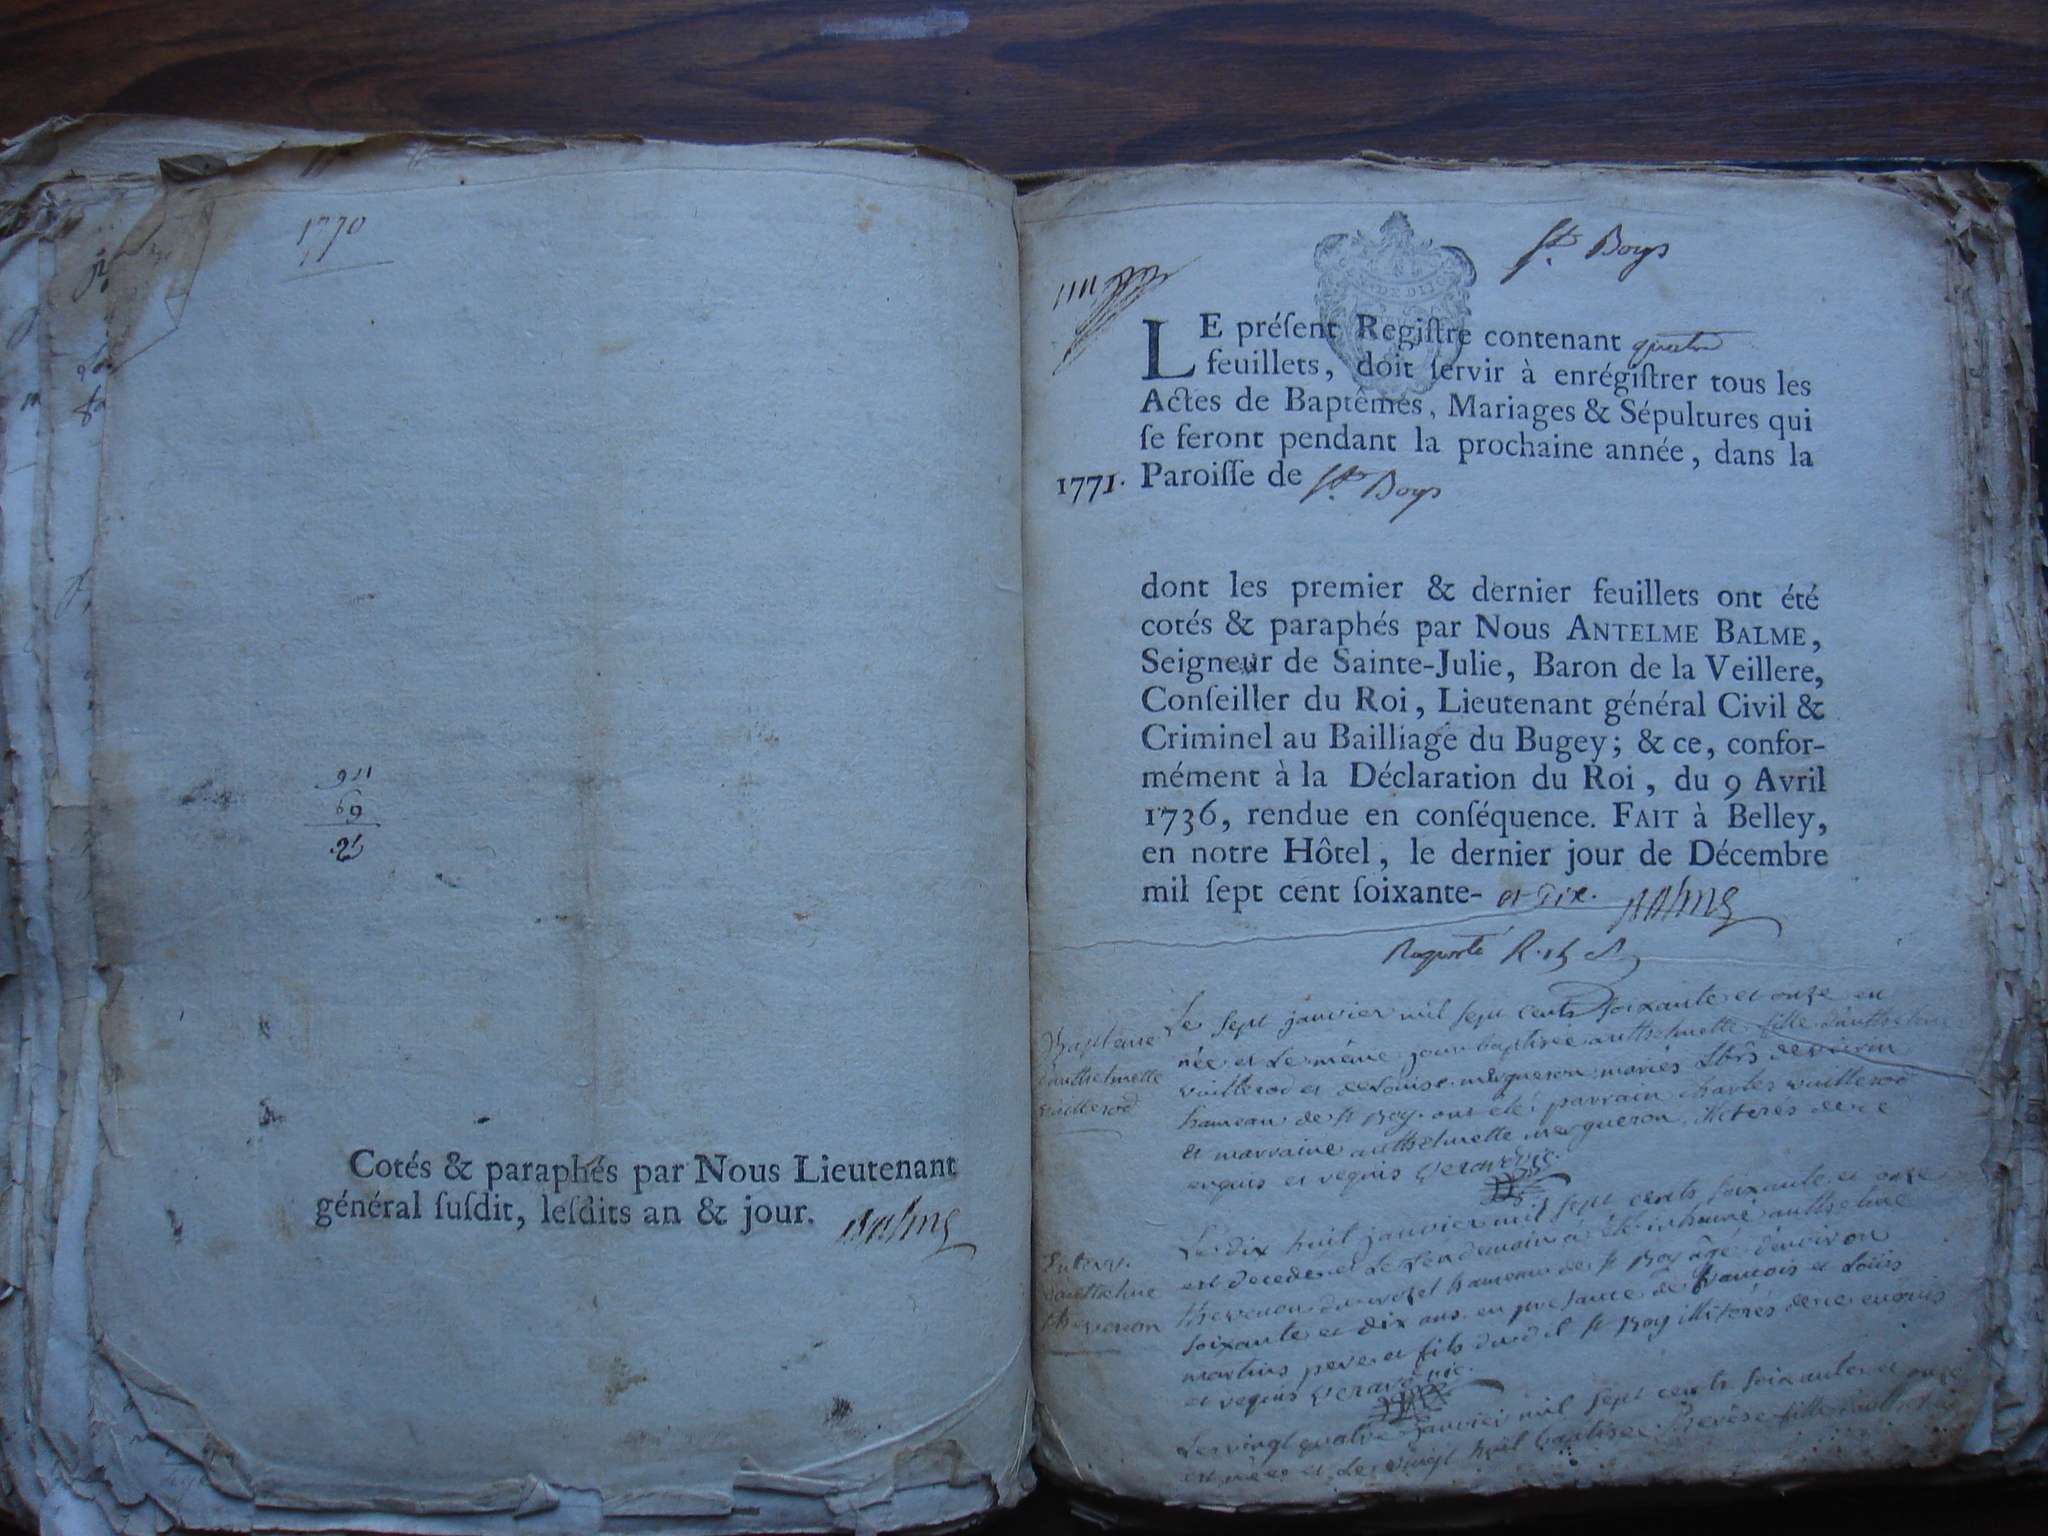 1770
911
69
Cotés & paraphés par Nous Lieutenant
général ſuſdit, leſdits an & jour. Balme
St. Boys
LE préſent Regiſtre contenant quatre
feuillets, doit ſervir à enrégiſtrer tous les
Actes de Baptêmes, Mariages & Sépultures qui
ſe feront pendant la prochaine année, dans la
1771. Paroiſſe de St. Boys
dont les premier & dernier feuillets ont été
cotés & paraphés par Nous ANTELME BALME,
Seigneur de Sainte-Julie, Baron de la Veillere,
Conſeiller du Roi, Lieutenant général Civil &
Criminel au Bailliage du Bugey; & ce, confor-
mément à la Déclaration du Roi, du 9 Avril
1736, rendue en conſéquence. FAIT à Belley,
en notre Hôtel, le dernier jour de Décembre
mil ſept cent ſoixante- et dix. Balme
Baptême
d'authelmette
vuillerod
Le sept janvier mil sept cents soixante et onze est
née et le même jour baptisée authelmette fille d'authelme
vuillerod et de Louise mergueron mariés
hameau de st Boy ont été parrain charles vuillerod
et marraine authelmette mergueron illiterés de ce
enquis et requis
Enterr.
d'authelme
thevenon
Le dix huit janvier mil sept cents soixante et onze
est decedé et le lendemain a été inhumé authelme
thevenon hameau de st Boy âgé d'environ
soixante et dix ans en presance de francois et Loüis
martins pere et fils dud st Boy illiterés de ce enquis
et requis
Le vingt quatre janvier mil sept cents soixante et onze
est née et le vingt huit baptisée therèse fille